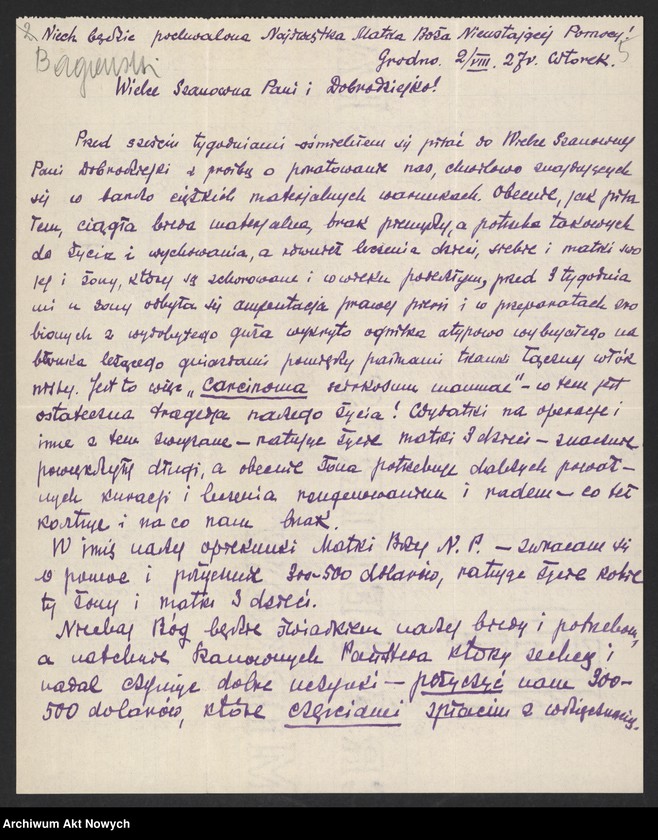 2 Niech będzie pochwalona Najświętsza Matka Boża Nieustającej Pomocy!
Grodno. 2/VIII. 27r. Wtorek. 5
Wielce Szanowna Pani i Dobrodziejko!
Przed sześciu tygodniami ośmieliłem się pisać do Wielce Szanownej
Pani Dobrodziejki z prośbą o poratowanie nas, chwilowo znajdujących
się w bardzo ciężkich materjalnych warunkach. Obecnie, jak pisa
łem, ciągła bieda materjalna, brak pieniędzy, a potrzeba takowych
do życia i wychowania, a również leczenia dzieci, siebie i matki swo
jej i żony, którzy są schorowani i w wieku podeszłym, przed 3 tygodnia
mi u żony odbyła się amputacja prawej piersi i w preparatach zro
bionych z wydobytego guza wykryto ogniska atypowo wybujałego na
błonka leżącego gniazdami pomiędzy pasmami tkanki łącznej włók
nistej. Jest to więc „Carcinoma scirrhosum mammae" – w tem jest
ostateczna tragedja naszego życia! Wydatki na operację i
inne z tem związane – ratując życie matki 3 dzieci – znacznie
powiększyły długi, a obecnie żona potrzebuje dalszych poważ–
nych kuracji i leczenia rengenowaniem i radem – co też
kosztuje i na co nam brak.
W imię naszej opiekunki Matki Bożej N. P. – zwracam się
o pomoc i pożyczenie 300–500 dolarów, ratując życie kobie
ty żony i matki 3 dzieci.
Niechaj Bóg będzie świadkiem naszej biedy i potrzebom,
a natchnie Szanownych Państwa którzy zechcą i
nadal czyniąc dobre uczynki – pożyczyć nam 300–
500 dolarów, które częściami spłacim z wdzięcznością.
Archiwum Akt Nowych